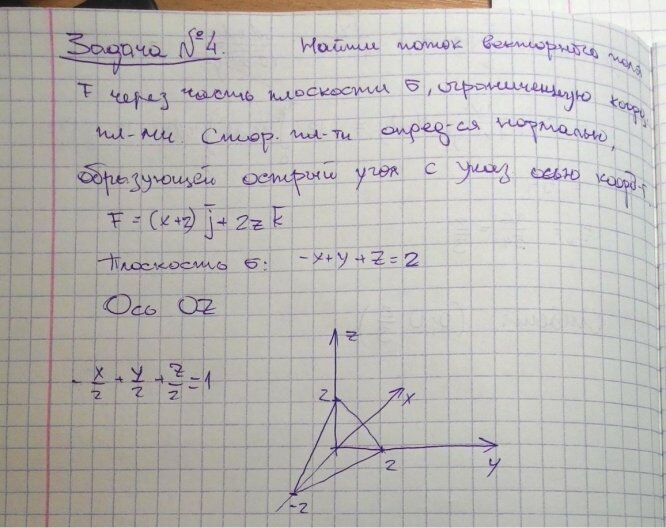 Задача №4. Найти поток векторного поля
F через часть плоскости б, ограниченную коорд.
пл-ми. Стор. пл-ти опред-ся нормалью,
образующей острый угол с указ осью коорд-т.
F = (x+z) j + 2z k
Плоскость б: -x+y+z=2
Ось OZ
- x/2 + y/2 + z/2 = 1
z
2
x
2
y
-2